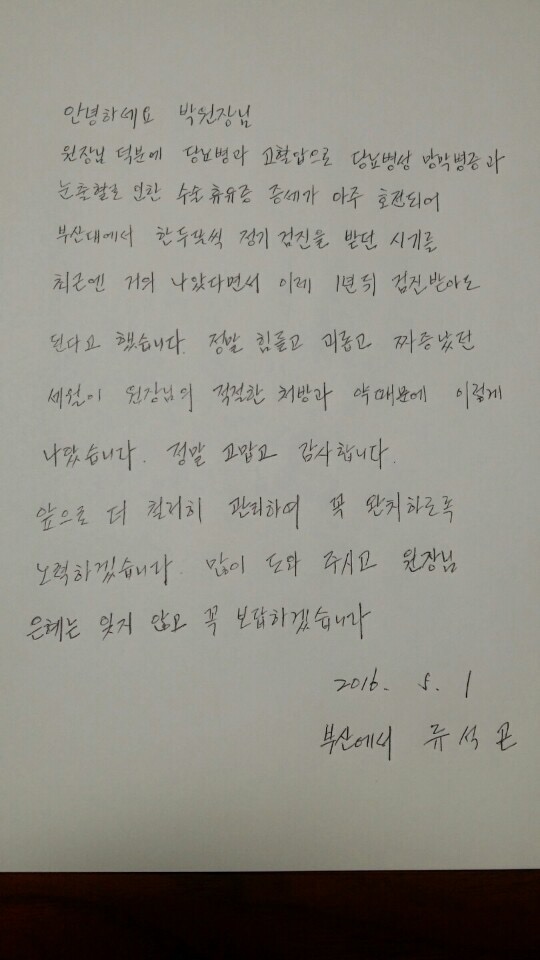 안녕하세요 박원장님
원장님 덕분에 당뇨병과 고혈압으로 당뇨병성 망막병증과
눈출혈로 인한 수술휴유증 증세가 아주 호전되어
부산대에서 한두달씩 정기 검진을 받던 시기를
최근엔 거의 나았다면서 이제 1년뒤 검진받아도
된다고 했습니다. 정말 힘들고 괴롭고 짜증났던
세월이 원장님의 적절한 처방과 약때문에 이렇게
나았습니다. 정말 고맙고 감사합니다.
앞으로 더 철저히 관리하여 꼭 완치하도록
노력하겠습니다. 많이 도와 주시고 원장님
은혜는 잊지 않고 꼭 보답하겠습니다
2016. 5. 1
부산에서 류석곤